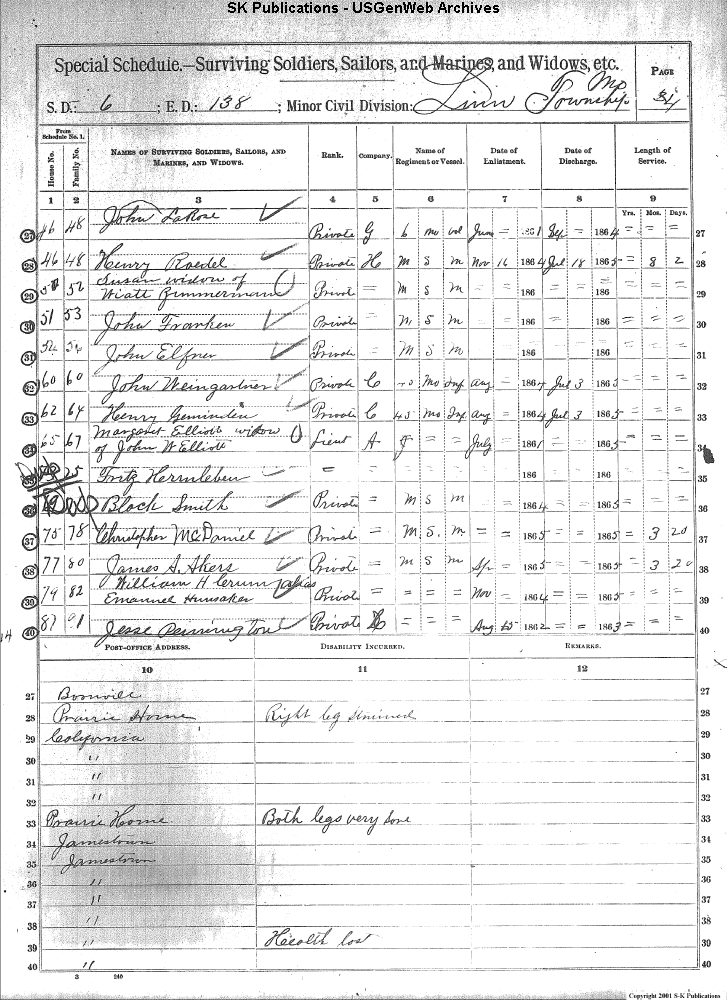 SK Publications - USGenWeb Archives
Special Schedule.—Surviving Soldiers, Sailors, and Marines, and Widows, etc.
S. D.: 6 ; E. D.: 138 ; Minor Civil Division: Linn Township Mo
PAGE
From Schedule No. 1.
House No. Family No. NAMES OF SURVIVING SOLDIERS, SAILORS, AND MARINES, AND WIDOWS. Rank. Company. Name of Regiment or Vessel. Date of Enlistment. Date of Discharge. Length of Service.
1 2 3 4 5 6 7 8 9
Yrs. Mos. Days.
27 46 48 John LaRose Private G 6 Mo Vol June = 1861 Sep = 1864 = = = 27
28 46 48 Henry Roedel Private H M S M Nov 16 1864 Jul 18 1865 = 8 2 28
29 52 Susan widow of
Wiatt Zimmerman Privat = M S M = = 186 = = 186 = = = 29
30 51 53 John Franken Private = M S M 186 186 = = = 30
31 52 54 John Elfner Private = M S M 186 186 = = = 31
32 60 60 John Weingartner Private C Mo Inf Aug = 1864 Jul 3 1865 = = = 32
33 62 64 Henry Geminden Private C 45 Mo Inf Aug = 1864 Jul 3 1865 = = = 33
34 65 67 Margaret Elliott widow
of John W Elliott Lieut A = = July = 1861 = = 1865 = = = 34
25 Fritz Hernleben = = = = = 186 186 35
36 Dead Block Smith Private = M S M 1864 = = 186 = = = 36
37 75 78 Christopher McDaniel Privat = M. S. M = = 1865 = = 1865 = 3 20 37
38 77 80 James A. Akers Private = M S M Sp = 1865 = = 1865 = 3 20 38
39 79 82 William H Crum alias
Emanuel Hunsaker Private = = = = Nov = 1864 = = 1865 = = = 39
40 87 91 Jesse Pennington Private = = = Aug 15 1862 = = 1863 = = = 40
14
POST-OFFICE ADDRESS. DISABILITY INCURRED. REMARKS.
10 11 12
27 Boonville 27
28 Prairie Home Right leg strained 28
29 California 29
30 " 30
31 " 31
32 " 32
33 Prairie Home Both legs very sore 33
34 Jamestown 34
35 Jamestown 35
36 " 36
37 " 37
38 " 38
39 " Health lost 39
40 " 40
3 240
Copyright 2001 S-K Publications